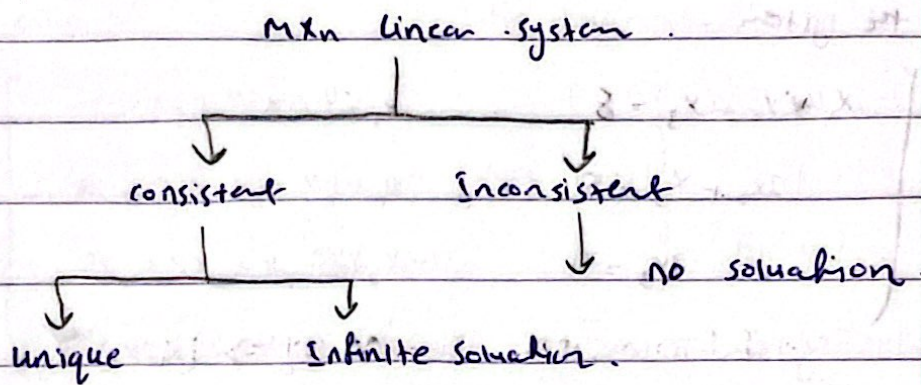 mxn linear system.
consistent Inconsistent
no soluation
unique Infinite soluation.